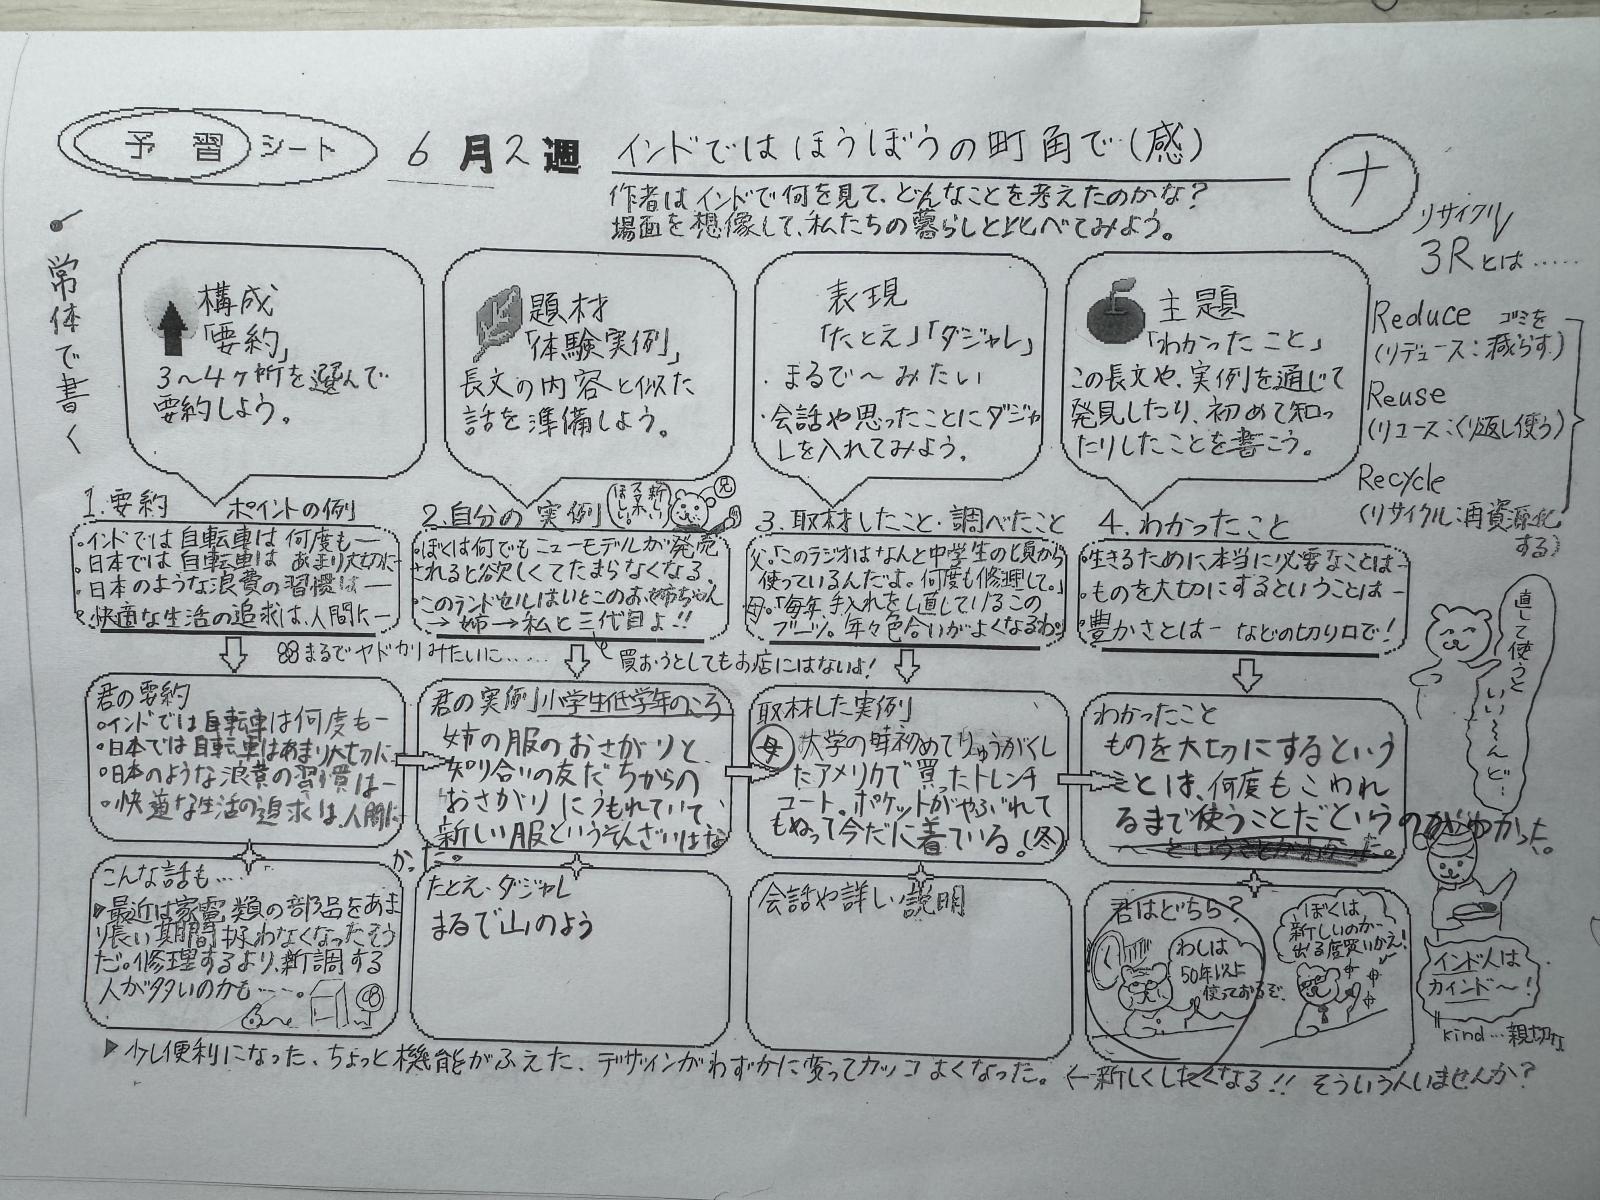 予習シート
6月2週
インドではほうぼうの町角で(感)
ナ
作者はインドで何を見て、どんなことを考えたのかな?
場面を想像して、私たちの暮らしと比べてみよう。
常体で書く
構成
「要約」
3〜4ヶ所を選んで
要約しよう。
題材
「体験実例」
長文の内容と似た
話を準備しよう。
表現
「たとえ」「ダジャレ」
・まるで〜みたい
・会話や思ったことにダジャ
レを入れてみよう。
主題
「わかったこと」
この長文や、実例を通じて
発見したり、初めて知っ
たりしたことを書こう。
リサイクル
3Rとは……
Reduce ゴミを
(リデュース:減らす)
Reuse
(リユース:くり返し使う)
Recycle
(リサイクル:再資源化
する)
1.要約 ポイントの例
・インドでは自転車は何度も―
・日本では自転車はあまり大切に―
・日本のような浪費の習慣は―
・快適な生活の追求は、人間に―
2.自分の実例
新しい
スマホ
ほしい。
兄
・ぼくは何でもニューモデルが発売
されると欲しくてたまらなくなる。
・このランドセルはいとこのお姉ちゃん
→姉→私と三代目よ!!
3.取材したこと・調べたこと
父.「このラジオはなんと中学生の頃から
使っているんだよ。何度も修理して。」
母.「毎年手入れをし直しているこの
ブーツ。年々色合いがよくなるわ。
4.わかったこと
・生きるために本当に必要なことは―
・ものを大切にするということは―
・豊かさとは― などの切り口で!
まるでヤドカリみたいに……
買おうとしてもお店にはないよ!
直して使うと
いい〜んど…
君の要約
・インドでは自転車は何度も―
・日本では自転車はあまり大切に―
・日本のような浪費の習慣は―
・快適な生活の追求は、人間に
君の実例 小学生低学年のころ
姉の服のおさがりと、
知り合いの友だちからの
おさがりにうもれていて、
新しい服というそんざいはな
かった。
取材した実例
母 大学の時初めてりゅうがくし
たアメリカで買ったトレンチ
コート。ポケットがやぶれて
もぬって今だに着ている。(冬)
わかったこと
ものを大切にするという
ことは、何度もこわれ
るまで使うことだというのがわかった。
こんな話も…
▶最近は家電類の部品をあま
り長い期間扱わなくなったそう
だ。修理するより、新調する
人が多いのかも…。
たとえ・ダジャレ
まるで山のよう
会話や詳しい説明
君はどちら?
わしは
50年以上
使っておるぞ。
ぼくは
新しいのが
出る度買いかえ!
インド人は
カインド〜!
kind…親切な
▶少し便利になった、ちょっと機能がふえた、デザインがわずかに変ってカッコよくなった。←新しくしたくなる!! そういう人いませんか?